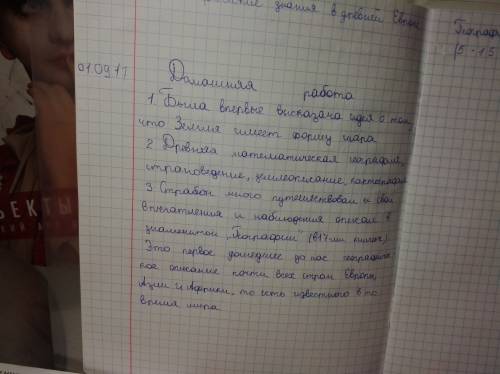 знания в древней Европе
Географ
(5 - 15
01.09.17
Домашняя работа
1. Была впервые высказана идея о том,
что Земля имеет форму шара
2. Древняя математическая география,
страноведение, землеописание, картография
3. Страбон много путешествовал и свои
впечатления и наблюдения описал в
знаменитой "Географии" (в 17-ти книгах).
Это первое дошедшее до нас географичес
кое описание почти всех стран Европы,
Азии и Африки, то есть известного в то
время мира
ЕКТЫ